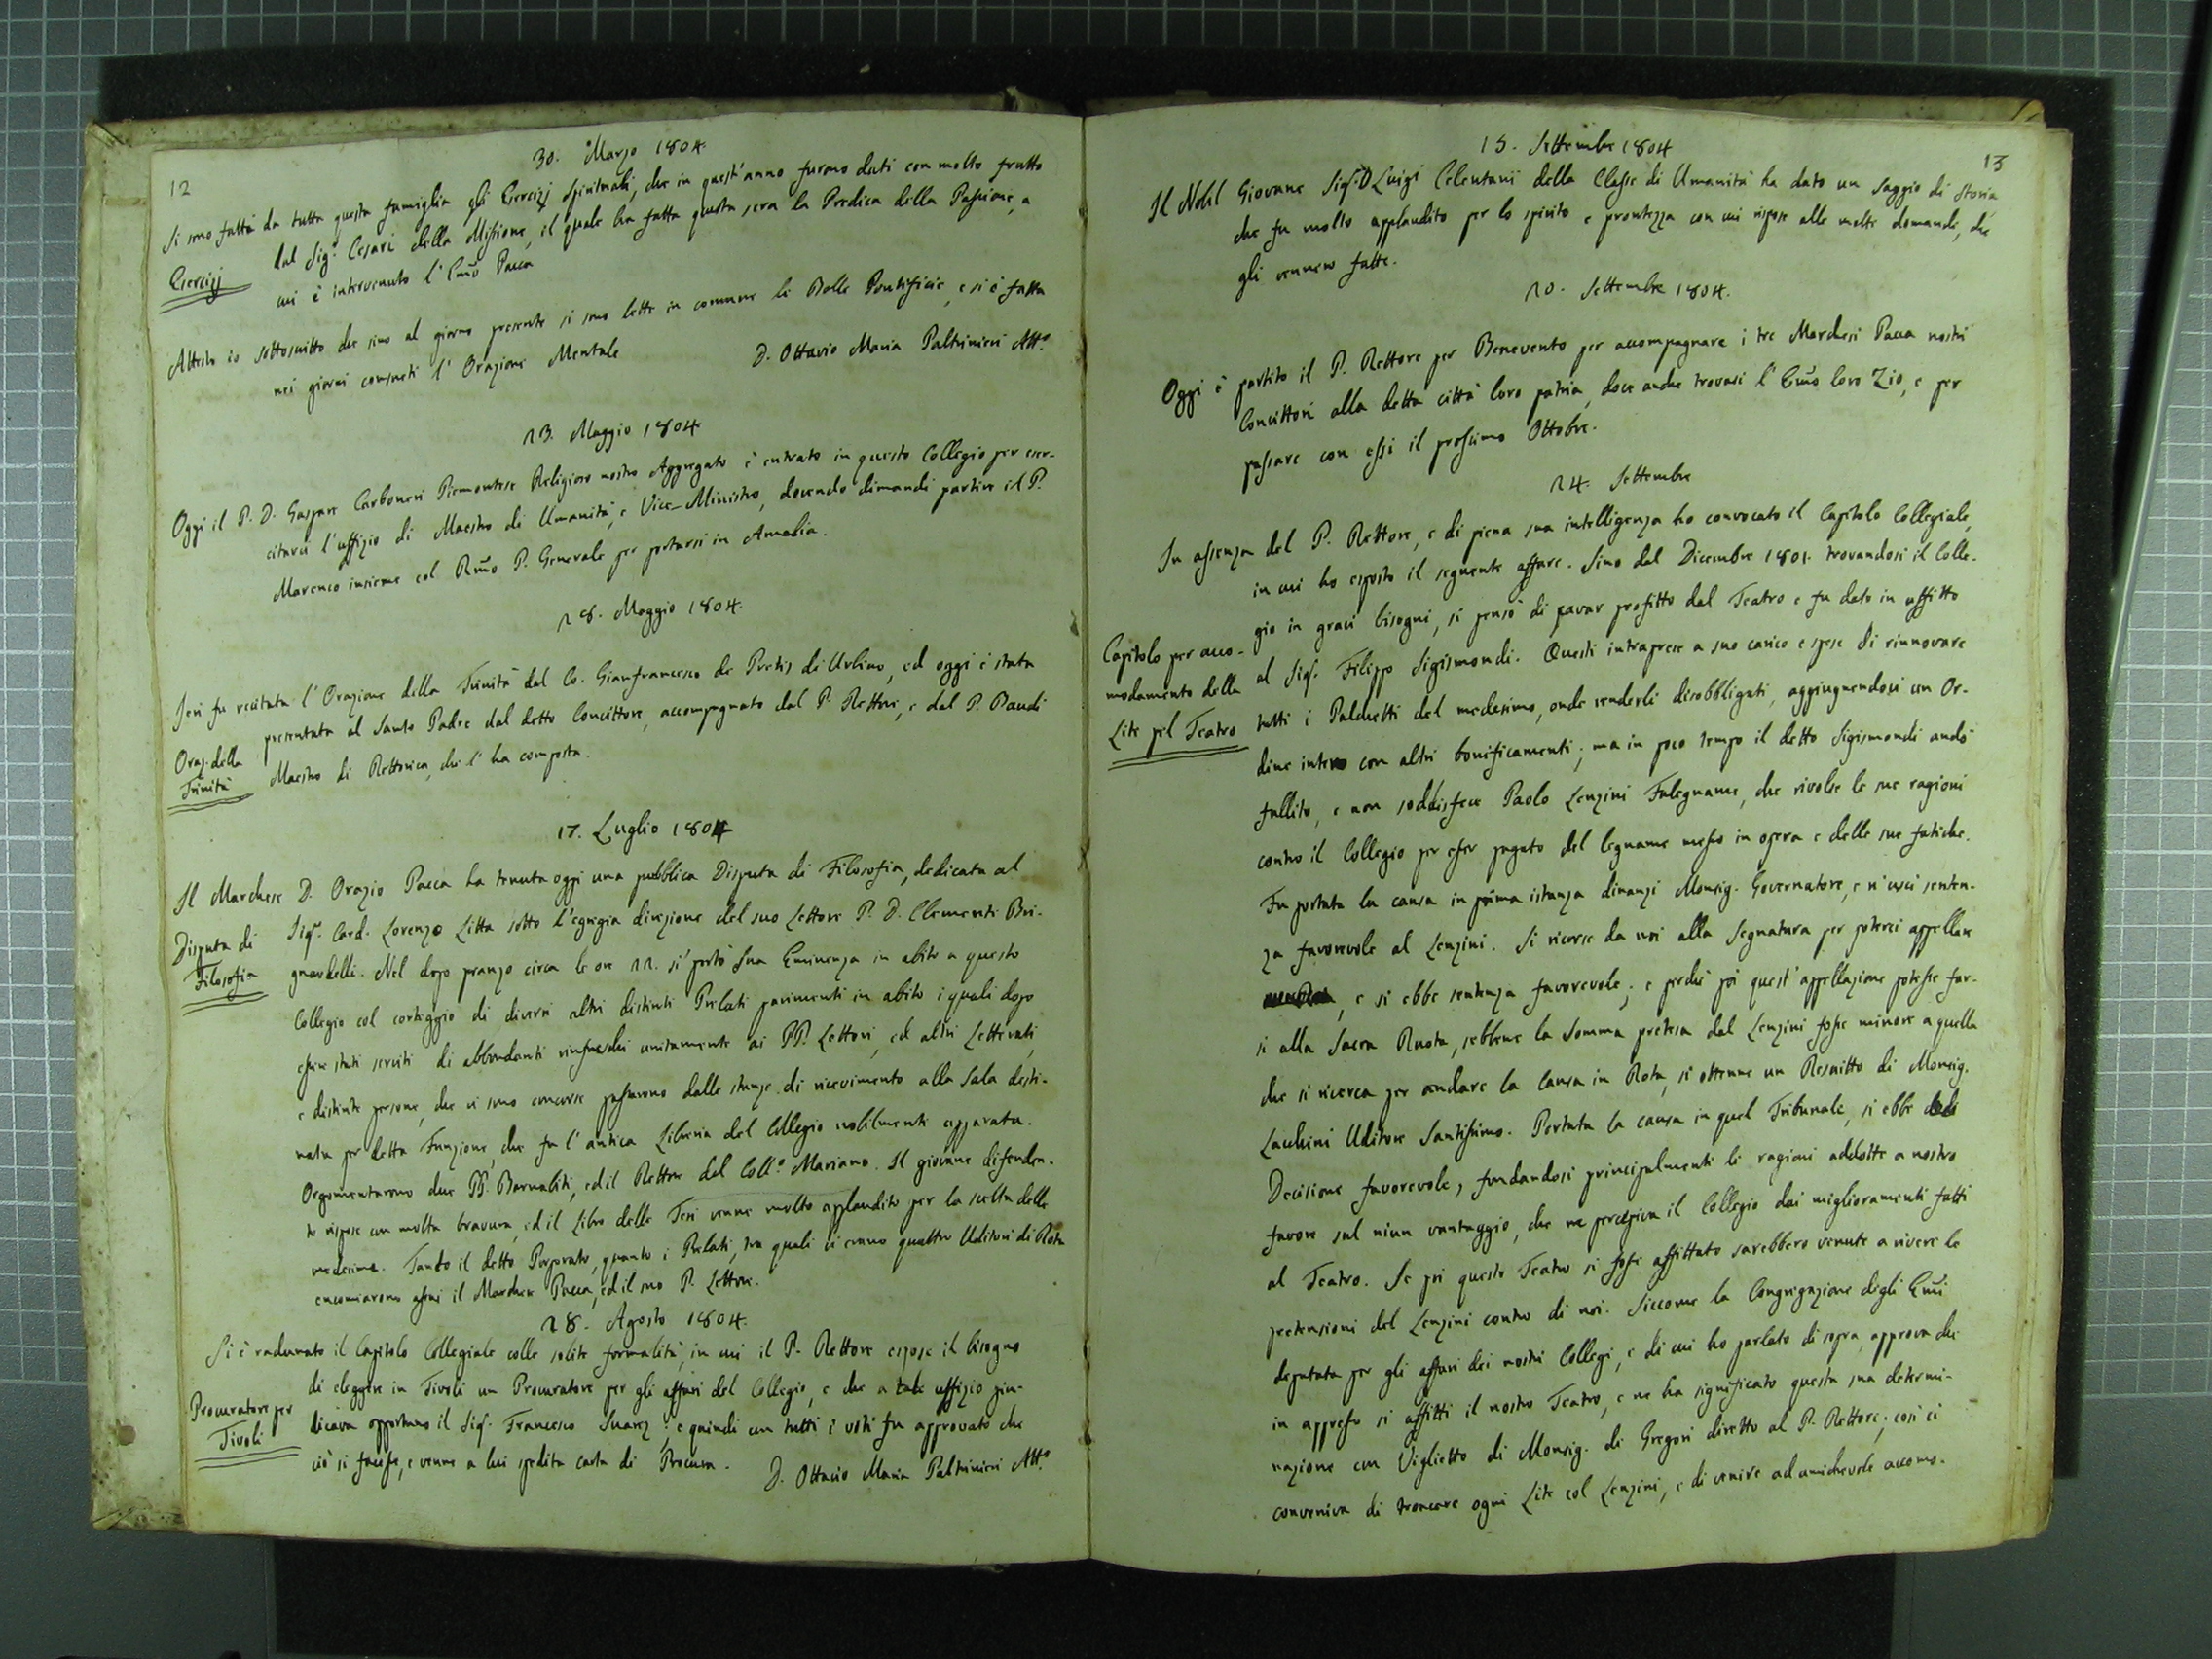 12
30. Marzo 1804.
Si sono fatti da tutta questa famiglia gli Esercizj Spirituali, che in quest'anno furono dati con molto frutto
dal Sig.r Cesari della Missione, il quale ha fatta questa sera la Predica della Passione, a
Esercizj
cui è intervenuto l'Emo Pacca
Attesto io sottoscritto che sino al giorno presente si sono lette in comune le Bolle Pontificie, e si è fatta
nei giorni consueti l'Orazione Mentale
D. Ottavio Maria Paltrinieri Att.o
23. Maggio 1804
Oggi il P. D. Gaspare Carboneri Piemontese Religioso nostro Aggregato è entrato in questo Collegio per eser-
citarvi l'uffizio di Maestro di Umanità, e Vice-Ministro, dovendo dimandi partire il P.
Marenco insieme col Rmo P. Generale per portarsi in Amelia.
28. Maggio 1804.
Jeri fu recitata l'Orazione della Trinità dal Co. Gianfrancesco de Pretis di Urbino, ed oggi è stata
presentata al Santo Padre dal detto Convittore, accompagnato dal P. Rettore, e dal P. Baudi
Oraz. della
Trinità
Maestro di Rettorica, che l'ha composta.
17. Luglio 1804
Il Marchese D. Orazio Pacca ha tenuta oggi una pubblica Disputa di Filosofia, dedicata al
Sig.r Card. Lorenzo Litta sotto l'egregia direzione del suo Lettore P. D. Clemente Bri-
Disputa di
Filosofia
gnardelli. Nel dopo pranzo circa le ore 22. si portò Sua Eminenza in abito a questo
Collegio col corteggio di diversi altri distinti Prelati parimenti in abito i quali dopo
essere stati serviti di abbondanti rinfreschi unitamente ai PP. Lettori, ed altri Letterati,
e distinte persone, che vi sono concorse passarono dalle stanze di ricevimento alla Sala desti-
nata per detta Funzione, che fu l'antica Libreria del Collegio nobilmente apparata.
Argomentarono due PP. Barnabiti, ed il Rettore del Coll.o Mariano. Il giovane difenden-
te rispose con molta bravura, ed il Libro delle Tesi venne molto applaudito per la scelta delle
medesime. Tanto il detto Porporato, quanto i Prelati, tra quali vi erano quattro Uditori di Rota
encomiarono assai il Marchese Pacca, ed il suo P. Lettore.
28. Agosto 1804.
Si è radunato il Capitolo Collegiale colle solite formalità, in cui il P. Rettore espose il bisogno
di eleggere in Tivoli un Procuratore per gli affari del Collegio, e che a tale uffizio giu-
Procuratore per
Tivoli
dicava opportuno il Sig.r Francesco Suarez: e quindi con tutti i voti fu approvato che
ciò si facesse, e venne a lui spedita carta di Procura.
D. Ottavio Maria Paltrinieri Att.o
13
15. Settembre 1804
Il Nobil Giovane Sig.r D Luigi Celentani della Classe di Umanità ha dato un saggio di storia,
che fu molto applaudito per lo spirito e prontezza con cui rispose alle molte domande, che
gli vennero fatte.
20. Settembre 1804.
Oggi è partito il P. Rettore per Benevento per accompagnare i tre Marchesi Pacca nostri
Convittori alla detta città loro patria, dove anche trovasi l'Emo loro Zio, e per
passare con essi il prossimo Ottobre.
24. Settembre
In assenza del P. Rettore, e di piena sua intelligenza ho convocato il Capitolo Collegiale,
in cui ho esposto il seguente affare. Sino dal Dicembre 1801. trovandosi il Colle-
gio in gravi bisogni, si pensò di cavar profitto dal Teatro e fu dato in affitto
Capitolo per acco-
modamento della
Lite pel Teatro
al Sig.r Filippo Sigismondi. Questi intraprese a suo carico e spese di rinnovare
tutti i Palchetti del medesimo, onde renderli disobbligati, aggiugnendovi un Or-
dine intero con altri bonificamenti; ma in poco tempo il detto Sigismondi andò
fallito, e non soddisfece Paolo Lenzini Falegname, che rivolse le sue ragioni
contro il Collegio per esser pagato del legname messo in opera e delle sue fatiche.
Fu portata la causa in prima istanza dinanzi Monsig. Governatore, e n'uscì senten-
za favorevole al Lenzini. Si ricorse da noi alla Segnatura per poterci appellare
, e si ebbe sentenza favorevole; e perchè poi quest'appellazione potesse far-
si alla Sacra Ruota, sebbene la Somma pretesa dal Lenzini fosse minore a quella
che si ricerca per andare la Causa in Rota, si ottenne un Rescritto di Monsig.
Lacchini Uditore Santissimo. Portata la causa in quel Tribunale, si ebbe
Decisione favorevole, fundandosi principalmente le ragioni addotte a nostro
favore sul niun vantaggio, che ne percepiva il Collegio dai miglioramenti fatti
al Teatro. Se poi questo Teatro si fosse affittato sarebbero venute a rivere le
pretensioni del Lenzini contro di noi. Siccome la Congregazione degli Emi
deputata per gli affari dei nostri Collegi, e di cui ho parlato di sopra, approva che
in appresso si affitti il nostro Teatro, e ne ha significato questa sua determi-
nazione con Viglietto di Monsig. di Gregori diretto al P. Rettore; così ci
conveniva di troncare ogni Lite col Lenzini, e di venire ad amichevole accomo-